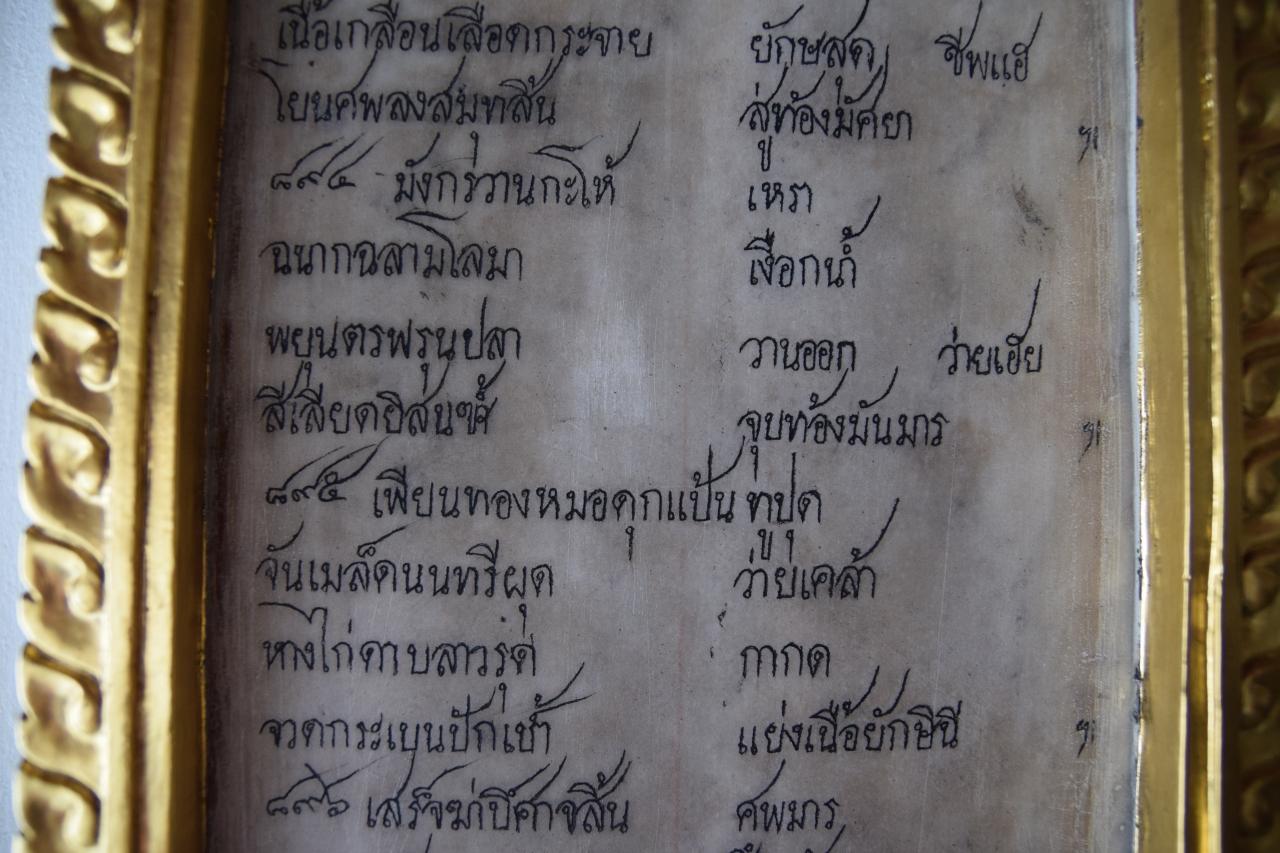 เนื้อเกลื่อนเลือดกระจาย ยักษสุด ชีพแฮ
โยนศพลงสมุทสิ้น สู่ท้องมัศยา ฯ
๘๙๔ มังกรวานกะโห้ เหรา
ฉนากฉลามโลมา เงือกน้ำ
พยูนตรพรุนปลา วานออก ว่ายเฮย
สีเสียดยิสนซ้ำ จุบท้องมันมาร ฯ
๘๙๕ เพียนทองหมอดุกแป้น ทูปุด
จันเมล็ดนนทรีผุด ว่ายเคล้า
หางไก่ดาบลาวรุด กากด
จวดกระเบนปักเป้า แย่งเนื้อยักษินี ฯ
๘๙๖ เสร็จฆ่าปีศาจสิ้น ศพมาร